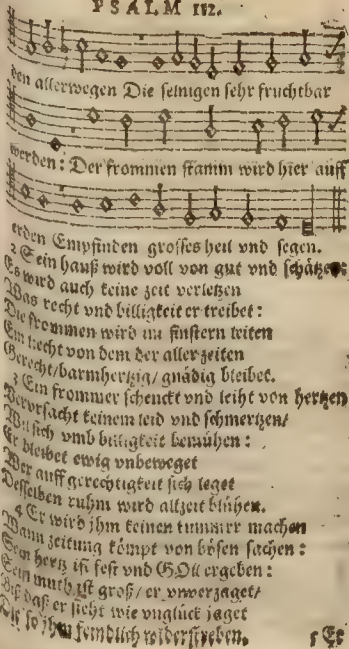 PSALM 112.
den allerwegen Die seinigen sehr fruchtbar
werden: Der frommen stamm wird hier auff
erden Empfinden grosses heil vnd segen.
2 Sein hauß wird voll von gut vnd schätzen:
Es wird auch keine zeit verletzen
Was recht vnd billigkeit er treibet:
Die frommen wird im finstern leiten
Ein liecht von dem der aller zeiten
Gerecht/barmhertzig/gnädig bleibet.
3 Ein frommer schenckt vnd leiht von hertzen
Vervrsacht keinem leid vnd schmertzen/
Wil sich vmb billigkeit bemühen:
Er bleibet ewig vnbeweget
Wer auff gerechtigkeit sich leget
Desselben ruhm wird allzeit blühen.
4 Er wird jhm keinen kummer machen
Wann zeitung kömpt von bösen sachen:
Sein hertz ist fest vnd GOtt ergeben:
Sein muth ist groß/er vnverzaget/
Biß daß er sieht wie vnglück jaget
Die so jhm feindlich widerstreben.
5 Er